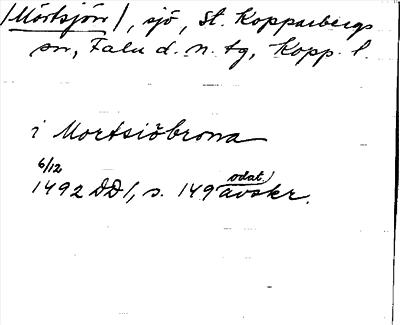 /Mörtsjön/, sjö, St. Kopparbergs
sn, Falu d. n. tg, Kopp. l.
i Mortsiöbrona
6/12
odat.
1492 DD/, s. 149 avskr.